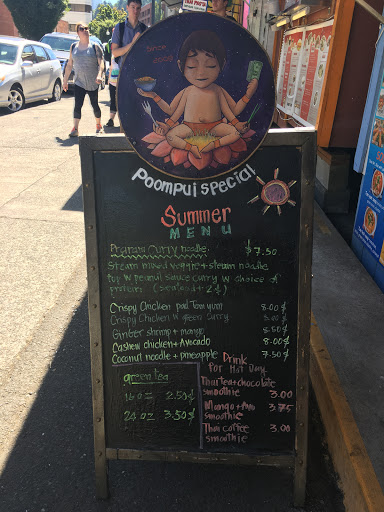 Since
Poompui special
Summer
MENU
Praram curry noodle $7.50
Steam mixed veggie + steam noodle
top w peanut sauce curry w choice of
protein (seafood + 2$)
Crispy Chicken pad Tom yum 8.00$
Crispy Chicken w green curry 8.00$
Ginger shrimp + mango 8.50$
Cashew chicken + Avocado 8.00$
Coconut noodle + pineapple 7.50$
Drink
For Hot Day
green tea
16 oz 2.50$
24 oz 3.50$
Thai tea + chocolate
smoothie 3.00
Mango + smoothie 3.75
Thai coffee
smoothie 3.00